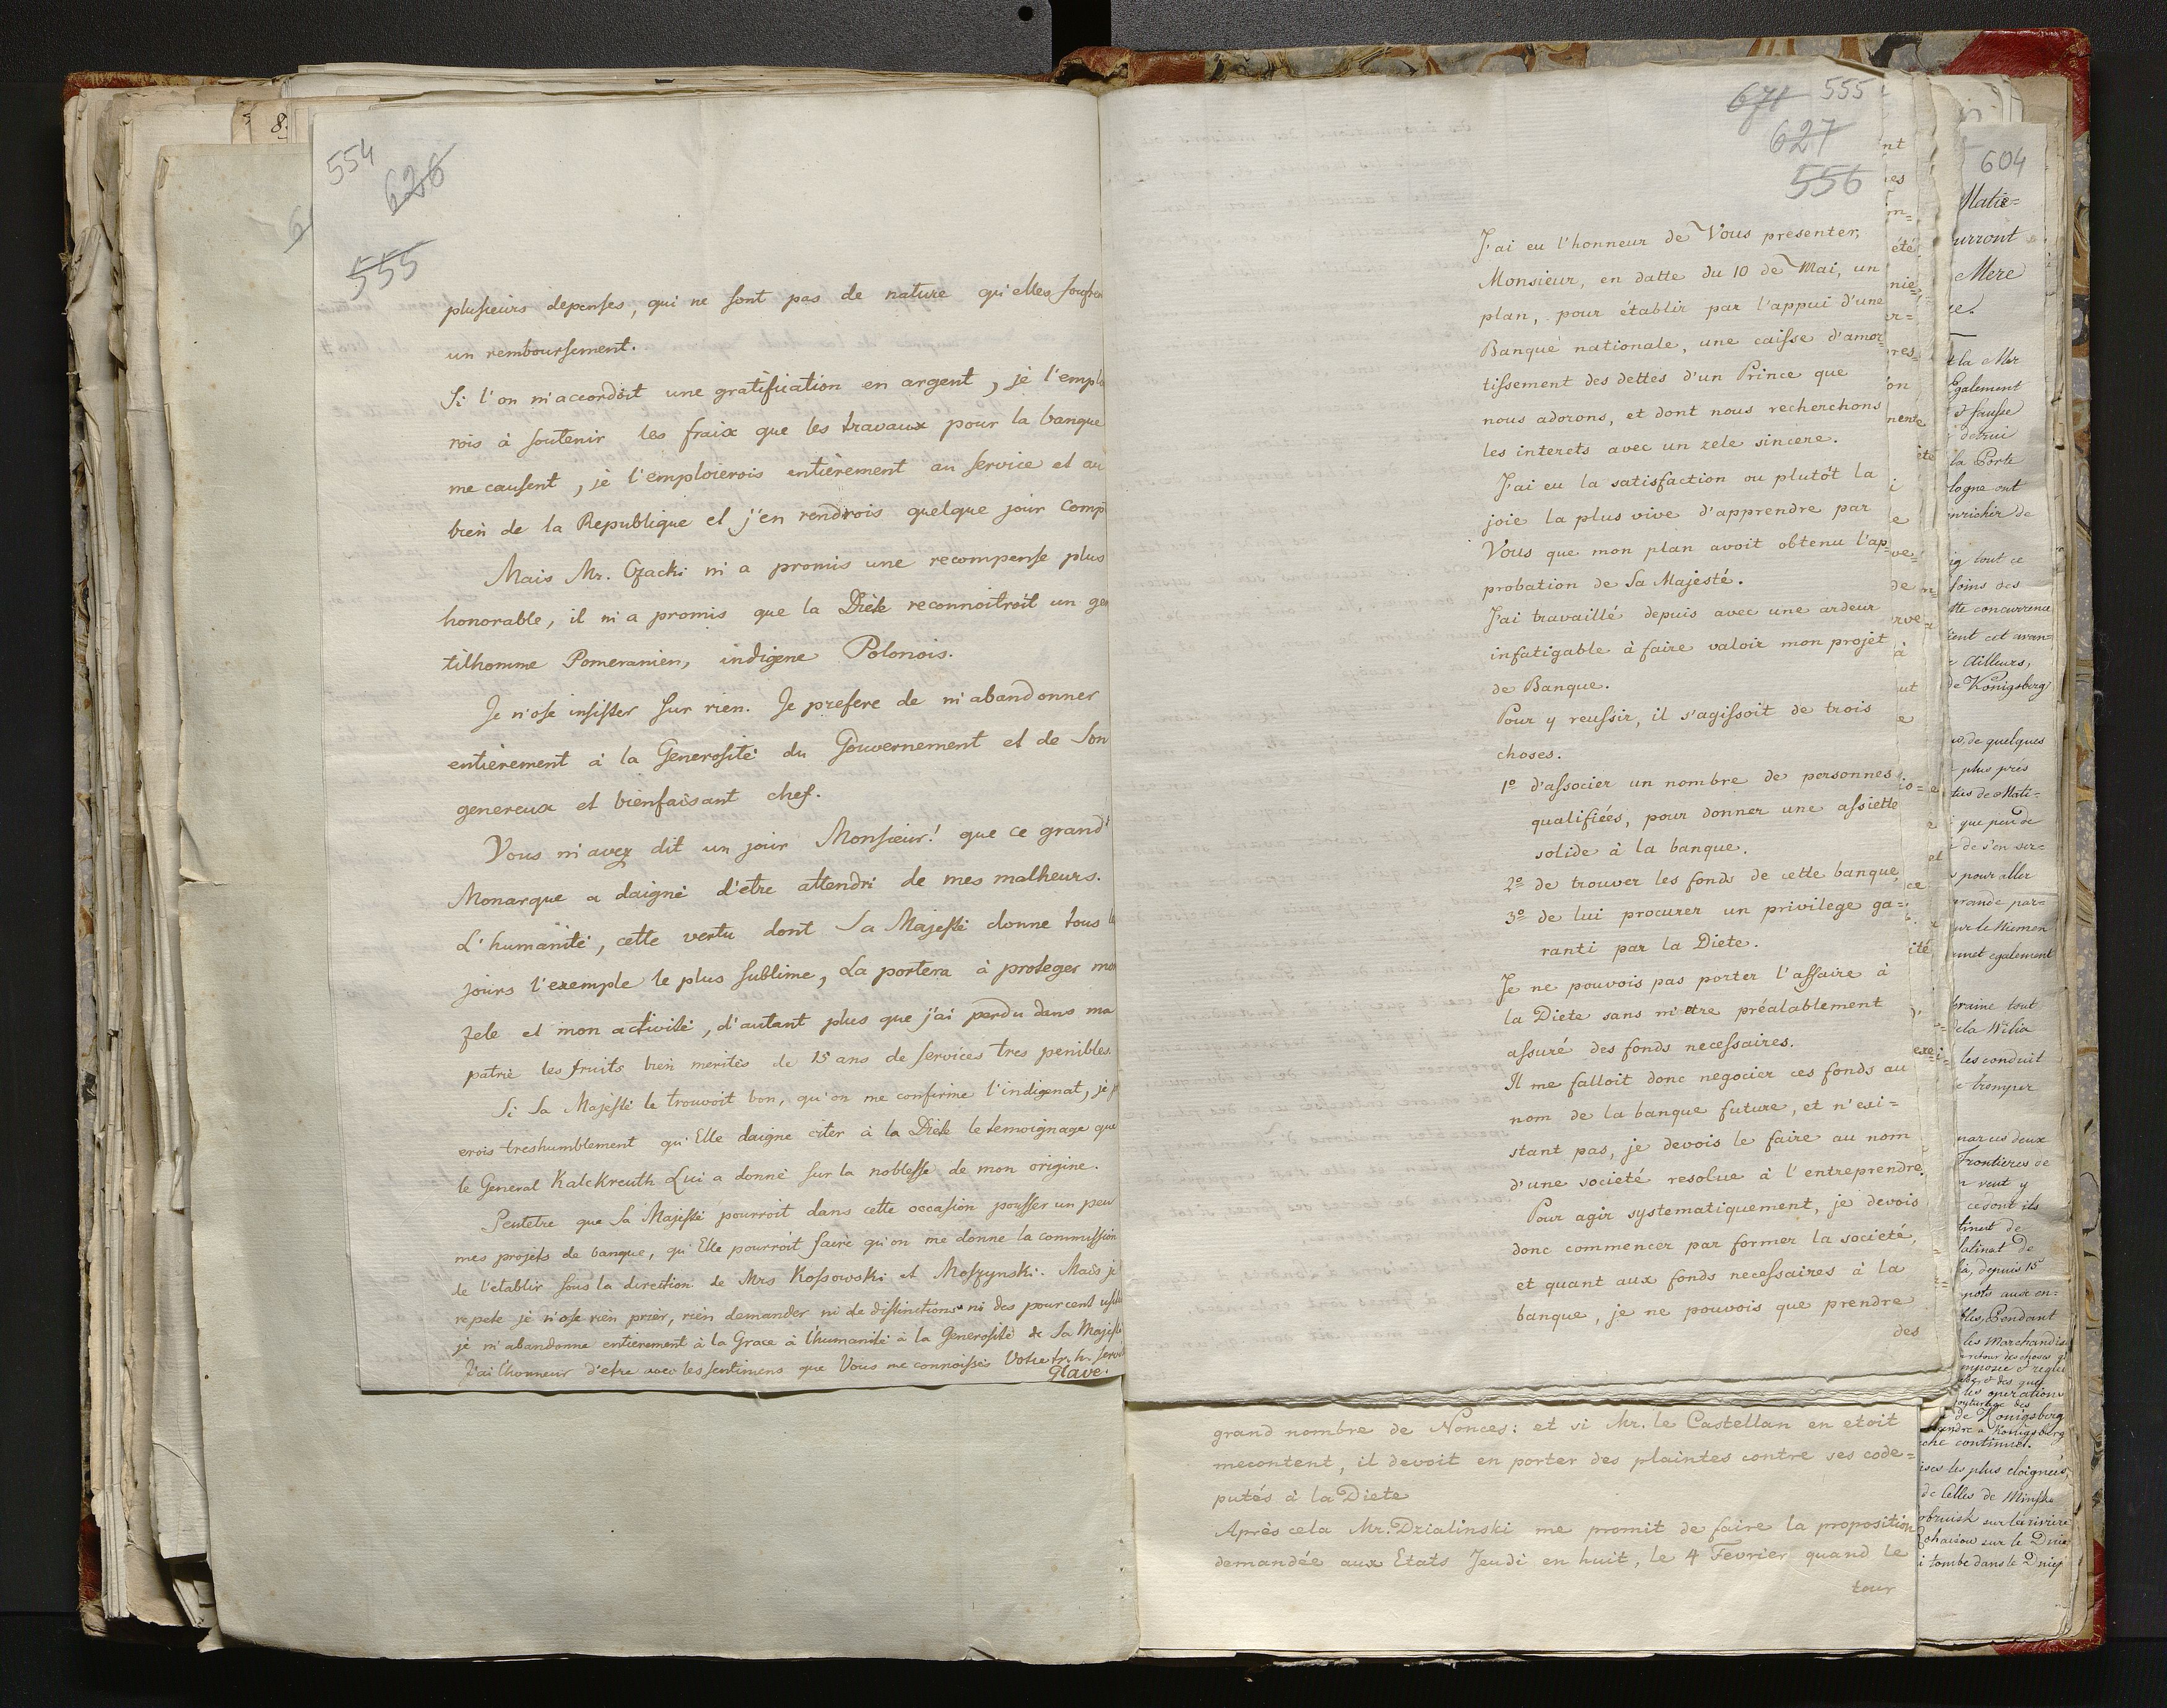 8.
554
626
555
plusieurs depenses, qui ne sont pas de nature qu'elles soufre
un remboursement.
Si l'on m'accordoit une gratification en argent, je l'emplo
rois à soutenir les fraix que les travaux pour la banque
me causent, je l'emploierois entièrement au service et au
bien de la Republique et j'en rendrois quelque jour comp
Mais Mr. Czacki m'a promis une recompense plus
honorable, il m'a promis que la Diète reconnoitroit un gen
tilhomme Pomeranien, indigene Polonois.
Je n'ose insister sur rien. Je prefere de m'abandonner
entièrement à la Generosité du Gouvernement et de Son
genereux et bienfaisant chef.
Vous m'avez dit un jour Monsieur! que ce grand
Monarque a daigné d'etre attendri de mes malheurs.
L'humanité, cette vertu dont Sa Majesté donne tous le
jours l'exemple le plus sublime, La portera à proteger mon
zele et mon activité, d'autant plus que j'ai perdu dans ma
patrie les fruits bien merités de 15 ans de services tres penibles.
Si Sa Majesté le trouvoit bon, qu'on me confirme l'indigenat, je
erois treshumblement qu'Elle daigne citer à la Diète le temoignage que
le General Kalckreuth Lui a donné sur la noblesse de mon origine.
Peutetre que Sa Majesté pourroit dans cette occasion pousser un peu
mes projets de banque, qu'Elle pourroit faire qu'on me donne la commission
de l'etablir sous la direction de Mrs Kossowski et Moszynski. Mais je
repete je n'ose rien prier, rien demander ni de distinctions ni des pourcent
je m'abandonne entierement à la Grace à l'humanité à la Generosité de Sa Majesté
J'ai l'honneur d'etre avec les sentimens que Vous me connoissés Votre tr. h. servit
Glave.
671 555
627
556
J'ai eu l'honneur de Vous presenter,
Monsieur, en datte du 10 de Mai, un
plan, pour établir par l'appui d'une
Banque nationale, une caisse d'amor=
tissement des dettes d'un Prince que
nous adorons, et dont nous recherchons
les interets avec un zele sincere.
J'ai eu la satisfaction ou plutôt la
joie la plus vive d'apprendre par
Vous que mon plan avoit obtenu l'ap=
probation de Sa Majesté.
J'ai travaillé depuis avec une ardeur
infatigable à faire valoir mon projet
de Banque.
Pour y reussir, il s'agissoit de trois
choses.
1º d'associer un nombre de personnes
qualifiées, pour donner une assiette
solide à la banque.
2º de trouver les fonds de cette banque
3º de lui procurer un privilege ga=
ranti par la Diete.
Je ne pouvois pas porter l'affaire à
la Diete sans m'etre préalablement
assuré des fonds necessaires.
Il me falloit donc negocier ces fonds au
nom de la banque future, et n'exi=
stant pas, je devois le faire au nom
d'une societé resolue à l'entreprendre.
Pour agir systematiquement, je devois
donc commencer par former la societé,
et quant aux fonds necessaires à la
banque, je ne pouvois que prendre
des
grand nombre de Nonces: et si Mr. le Castellan en etoit
mecontent, il devoit en porter des plaintes contre ses code=
putés à la Diete
Après cela Mr. Dzialinski me promit de faire la proposition
demandée aux Etats Jeudi en huit, le 4 Fevrier quand le
tour
604
Matie=
urront
Mere
t la Mer
Egalement
la Porte
logne ont
enrichir de
ig tout ce
soins des
tte concurrence
ient cet avan=
Ailleurs,
de Königsberg
de quelques
plus près
ties de Mati=
que peu de
de s'en ser=
pour aller
grande par=
sur le Niemen
met egalement
kraine tout
de la Wilia
les conduit
tromper
par ces deux
Frontieres de
veut y
ce dont ils
tinat de
latinat de
depuis 15
pots aux en=
Pendant
les Marchandise
les operations
de Königsberg
continuel.
ises les plus eloignées
de Celles de Minske
obruisk sur la riviere
sur le Dniep
i tombe dans le Dniep